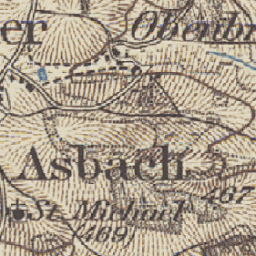 er
Oberbr
Asbach
467
St. Michael
(469)